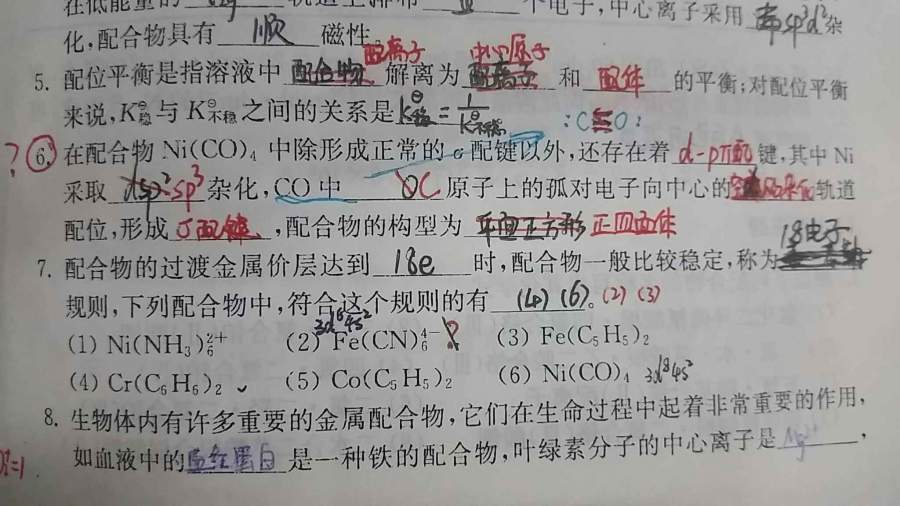 在低能量的 轨道上排布 个电子，中心离子采用 sp³d²杂
化，配合物具有 顺 磁性。
配离子 中心原子
5. 配位平衡是指溶液中 配合物 解离为 配离子 和 配体 的平衡；对配位平衡
来说，K稳⊖与 K不稳⊖之间的关系是 K稳⊖ = 1/K不稳⊖ :C≡O:
? 6. 在配合物 Ni(CO)₄ 中除形成正常的 σ 配键以外，还存在着 d-pπ配 键，其中 Ni
采取 dsp² sp³ 杂化，CO 中 C 原子上的孤对电子向中心的 轨道
配位，形成 σ配键 ，配合物的构型为 平面正方形 正四面体
18电子
7. 配合物的过渡金属价层达到 18e 时，配合物一般比较稳定，称为
规则，下列配合物中，符合这个规则的有 (4) (6)。(2) (3)
3d⁶4s²
(1) Ni(NH₃)₆²⁺ (2) Fe(CN)₆⁴⁻ ? (3) Fe(C₅H₅)₂
(4) Cr(C₆H₆)₂ (5) Co(C₅H₅)₂ (6) Ni(CO)₄ 3d⁸4s²
8. 生物体内有许多重要的金属配合物，它们在生命过程中起着非常重要的作用，
如血液中的 血红蛋白 是一种铁的配合物，叶绿素分子的中心离子是 Mg²⁺ ，
=1